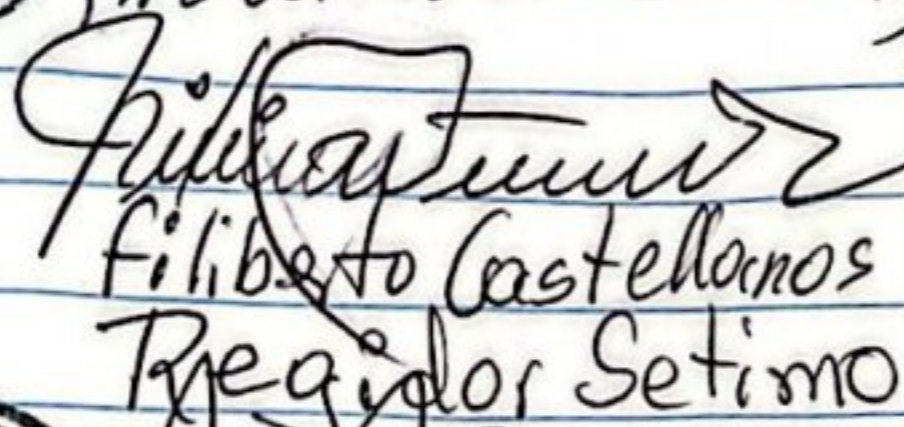 Filiberto Castellanos
Regidor Setimo